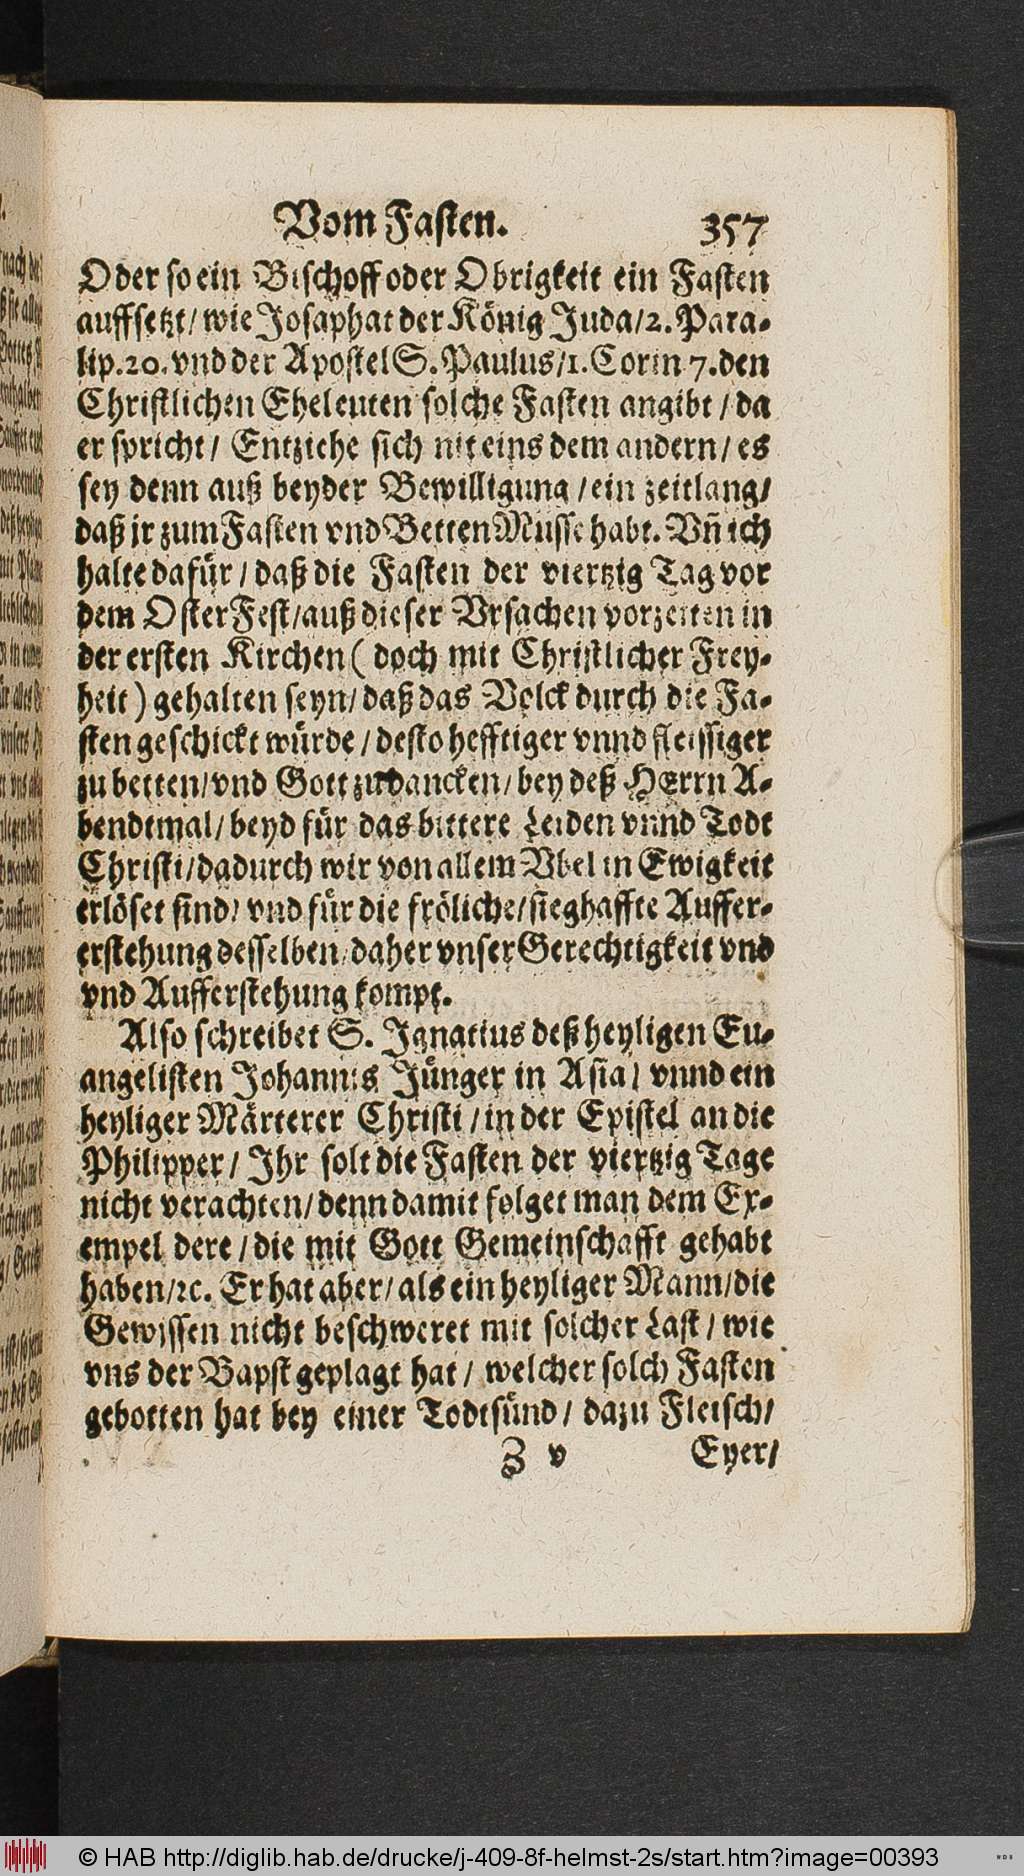 Vom Fasten. 357
Oder so ein Bischoff oder Obrigkeit ein Fasten
auffsetzt / wie Josaphat der König Juda / 2. Para-
lip. 20. vnd der Apostel S. Paulus / 1. Corin 7. den
Christlichen Eheleuten solche Fasten angibt / da
er spricht / Entziehe sich nit eins dem andern / es
sey denn auß beyder Bewilligung / ein zeitlang /
daß jr zum Fasten vnd Betten Musse habt. Vñ ich
halte dafür / daß die Fasten der viertzig Tag vor
dem OsterFest / auß dieser Vrsachen vorzeiten in
der ersten Kirchen ( doch mit Christlicher Frey-
heit ) gehalten seyn / daß das Volck durch die Fa-
sten geschickt würde / desto hefftiger vnnd fleissiger
zu betten / vnd Gott zu dancken / bey deß HErrn A-
bendtmal / beyd für das bittere Leiden vnnd Todt
Christi / dadurch wir von allem Vbel in Ewigkeit
erlöset sind / vnd für die fröliche / sieghaffte Auffer-
erstehung desselben / daher vnser Gerechtigkeit vnd
vnd Aufferstehung kompt.
Also schreibet S. Ignatius deß heyligen Eu-
angelisten Johannis Jünger in Asia / vnnd ein
heyliger Märterer Christi / in der Epistel an die
Philipper / Ihr solt die Fasten der viertzig Tage
nicht verachten / denn damit folget man dem Ex-
empel dere / die mit Gott Gemeinschafft gehabt
haben / ꝛc. Er hat aber / als ein heyliger Mann / die
Gewissen nicht beschweret mit solcher Last / wie
vns der Bapst geplagt hat / welcher solch Fasten
gebotten hat bey einer Todtsünd / dazu Fleisch /
Z v Eyer /
© HAB http://diglib.hab.de/drucke/j-409-8f-helmst-2s/start.htm?image=00393